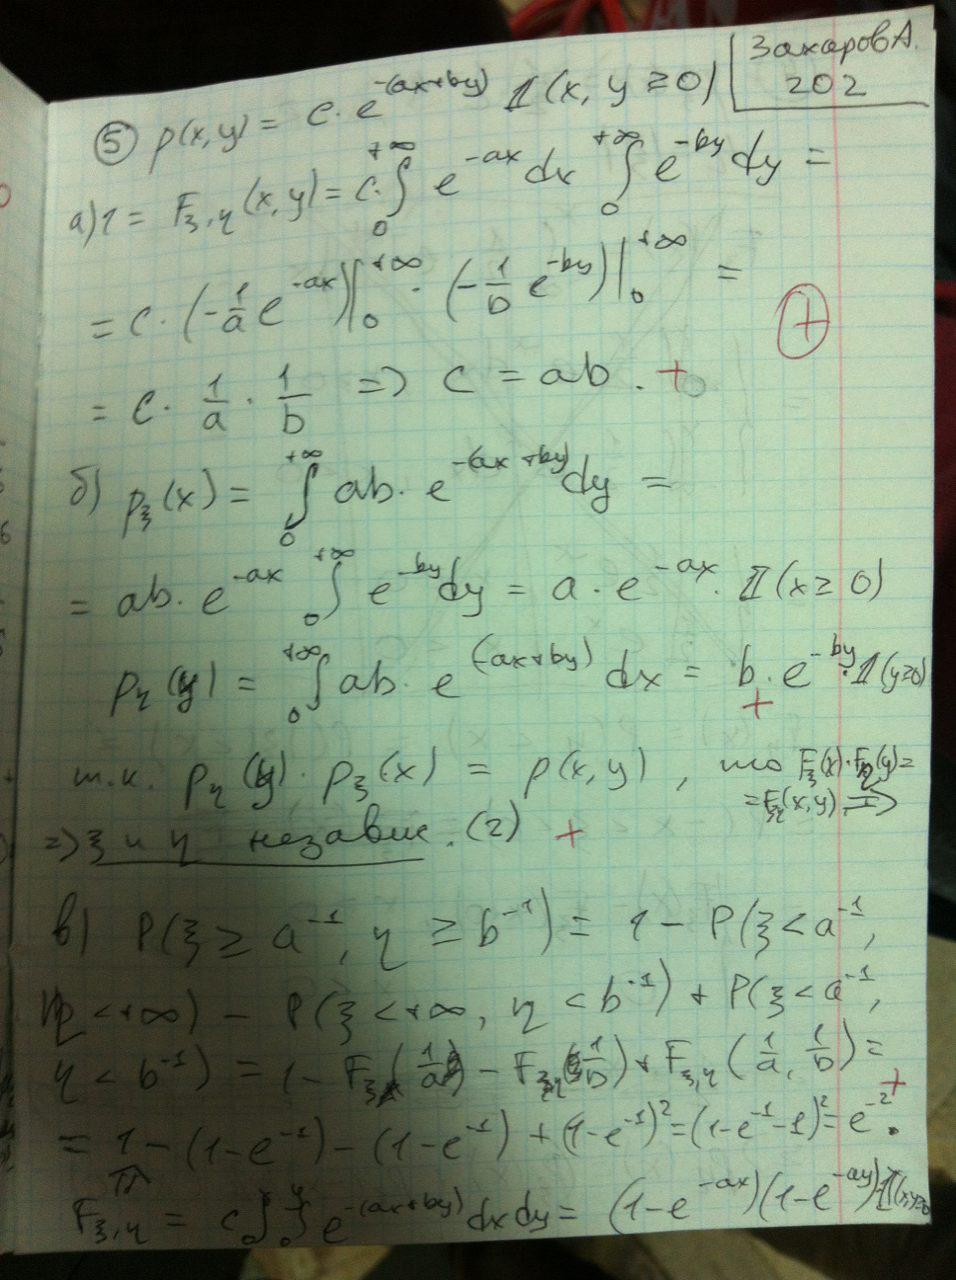 Захаров А.
202
⑤ p(x,y) = c·e^{-(ax+by)} 𝟙(x, y ≥ 0)
а) 1 = F_{ξ,η}(x,y) = c·∫_0^{+∞} e^{-ax} dx ∫_0^{+∞} e^{-by} dy =
= c·(-1/a e^{-ax})|_0^{+∞} · (-1/b e^{-by})|_0^{+∞} =
+
= c· 1/a · 1/b => c = ab. +
б) p_ξ(x) = ∫_0^{+∞} ab·e^{-(ax+by)} dy =
= ab·e^{-ax} ∫_0^{+∞} e^{-by} dy = a·e^{-ax}·𝟙(x ≥ 0)
p_η(y) = ∫_0^{+∞} ab·e^{(-ax+by)} dx = b·e^{-by}·𝟙(y≥0)
+
т.к. p_η(y)·p_ξ(x) = p(x,y), то F_ξ(x)·F_η(y)=
=F_{ξη}(x,y) =>
=> ξ и η независ. (г) +
в) P(ξ ≥ a^{-1}, η ≥ b^{-1}) = 1 - P(ξ < a^{-1},
η < +∞) - P(ξ < +∞, η < b^{-1}) + P(ξ < a^{-1},
η < b^{-1}) = 1 - F_ξ(1/a) - F_η(1/b) + F_{ξ,η}(1/a, 1/b) =
+
= 1 - (1-e^{-1}) - (1-e^{-1}) + (1-e^{-1})^2 = (1-e^{-1}-1)^2 = e^{-2}.
F_{ξ,η} = c∫_0^x∫_0^y e^{-(ax+by)} dx dy = (1-e^{-ax})(1-e^{-ay})𝟙(x,y≥0)